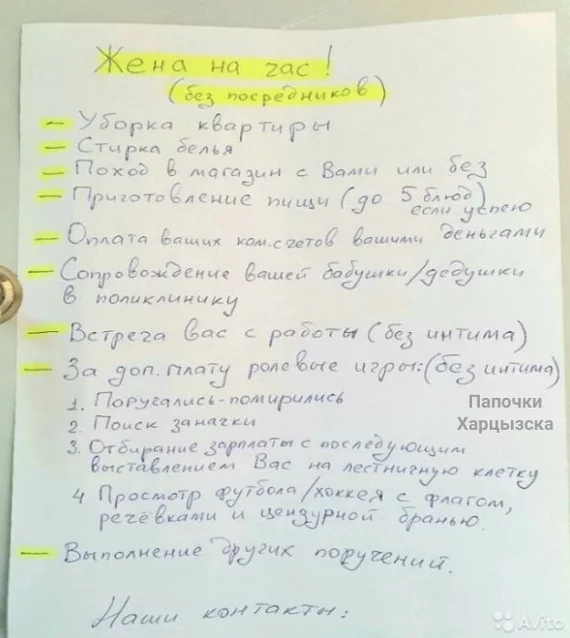 Жена на час!
(без посредников)
– Уборка квартиры
– Стирка белья
– Поход в магазин с Вами или без
– Приготовление пищи (до 5 блюд)
если успею
– Оплата ваших ком.счетов вашими деньгами
– Сопровождение вашей бабушки/дедушки
в поликлинику
– Встреча вас с работы (без интима)
– За доп. плату ролевые игры: (без интима)
1. Поругались-помирились
2. Поиск заначки
3. Отбирание зарплаты с последующим
выставлением Вас на лестничную клетку
4 Просмотр футбола/хоккея с флагом,
речёвками и цензурной бранью.
– Выполнение других поручений.
Наши контакты:
Папочки
Харцызска
Avito